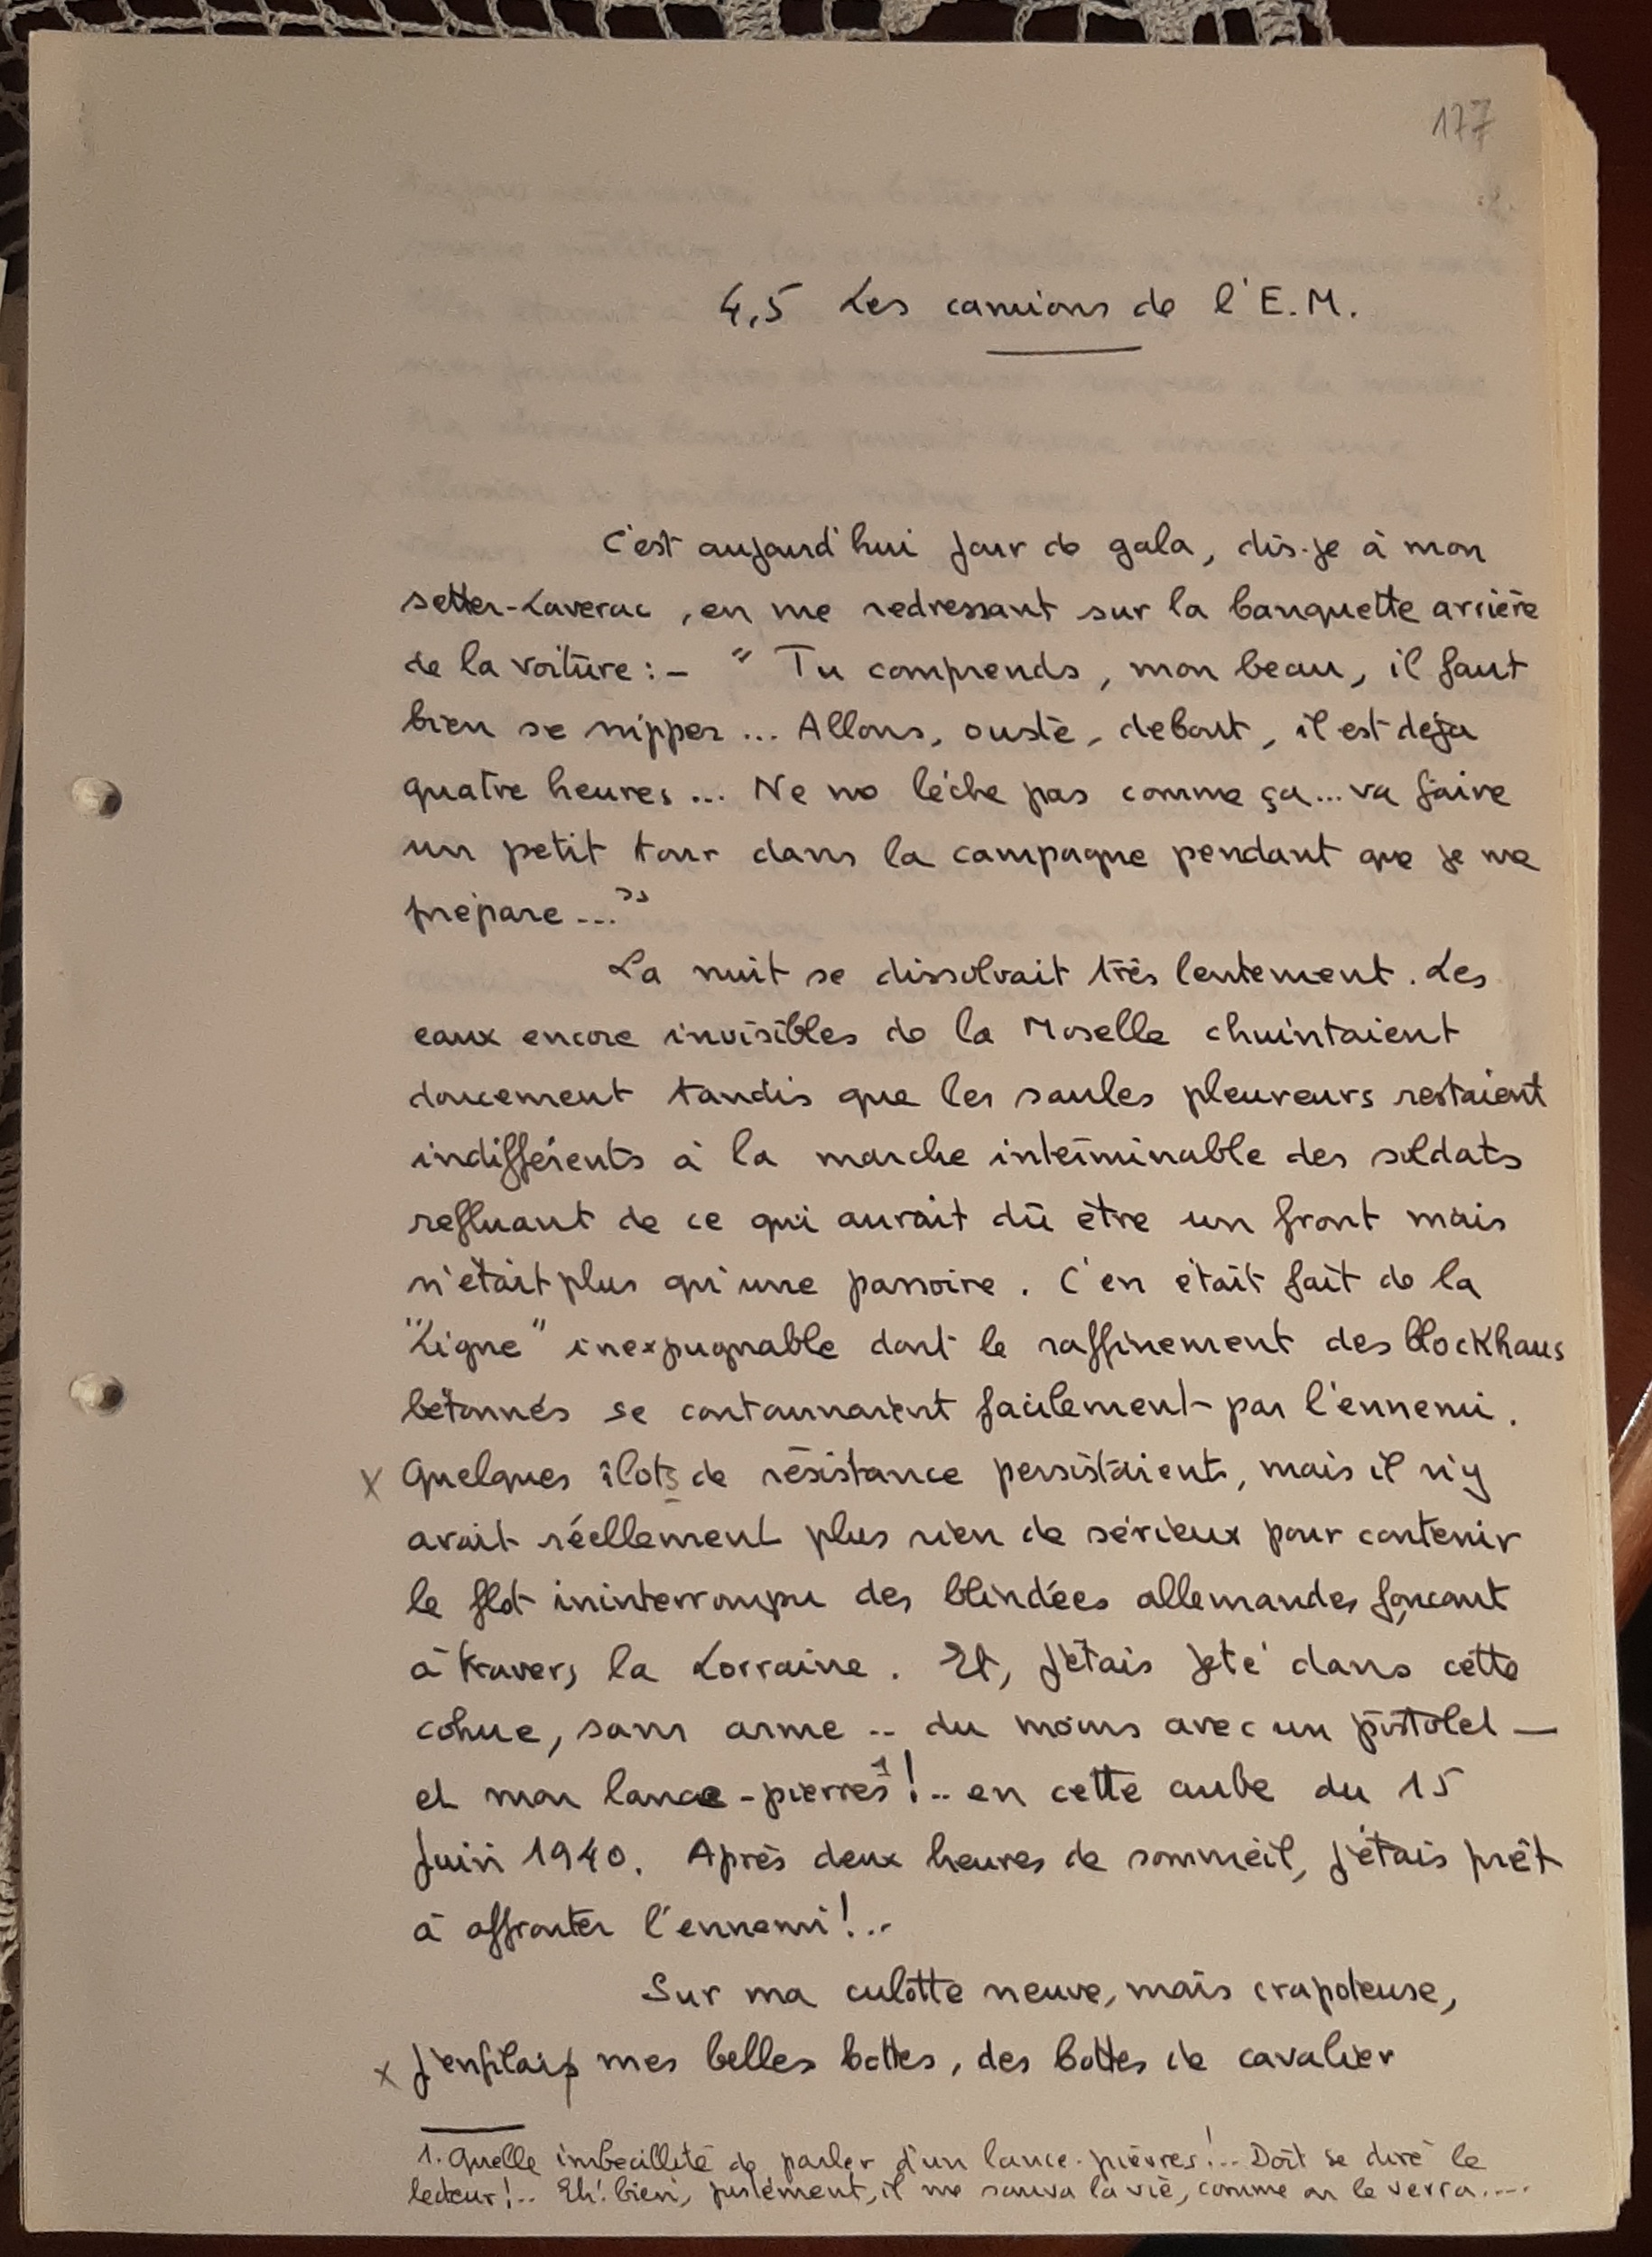 177
4,5 Les camions de l'E.M.
C'est aujourd'hui jour de gala, dis-je à mon
setter-Laverac, en me redressant sur la banquette arrière
de la voiture : - " Tu comprends, mon beau, il faut
bien se nipper ... Allons, ouste, debout, il est déjà
quatre heures ... Ne me lèche pas comme ça... va faire
un petit tour dans la campagne pendant que je me
prépare ..."
La nuit se dissolvait très lentement. Les
eaux encore invisibles de la Moselle chuintaient
doucement tandis que les saules pleureurs restaient
indifférents à la marche interminable des soldats
refluant de ce qui aurait dû être un front mais
n'était plus qu'une passoire. C'en était fait de la
"Ligne" inexpugnable dont le raffinement des blockhaus
bétonnés se contournaient facilement par l'ennemi.
x Quelques îlots de résistance persistaient, mais il n'y
avait réellement plus rien de sérieux pour contenir
le flot ininterrompu des blindées allemandes fonçant
à travers la Lorraine. Et, j'étais jeté dans cette
cohue, sans arme .. du moins avec un pistolet —
et mon lance-pierres¹!.. en cette aube du 15
Juin 1940. Après deux heures de sommeil, j'étais prêt
à affronter l'ennemi!..
Sur ma culotte neuve, mais crapoteuse,
x j'enfilais mes belles bottes, des bottes de cavalier
1. Quelle imbécillité de parler d'un lance-pierres!... Doit se dire le
lecteur!.. Eh! bien, justement, il me sauva la vie, comme on le verra....